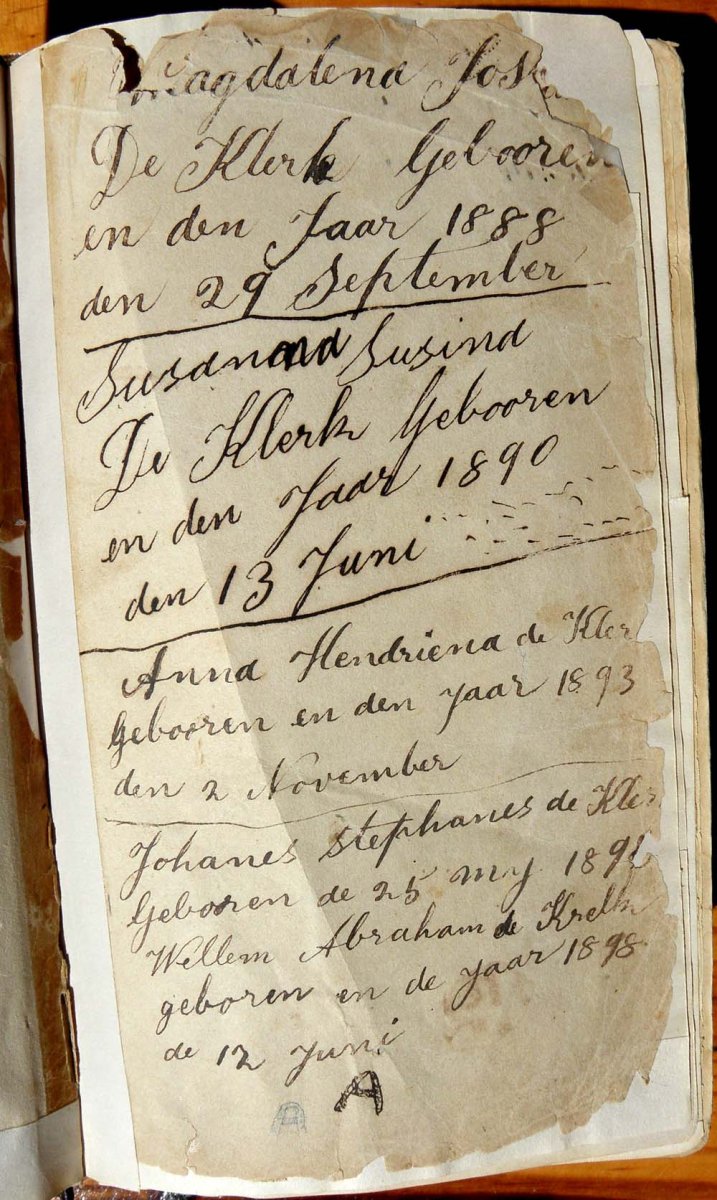 Magdalena
De Klerk Gebooren
en den Jaar 1888
den 29 September
Susanna Susina
De Klerk Gebooren
en den Jaar 1890
den 13 Juni
Anna Hendriena de Kler
Gebooren en den yaar 1893
den 2 November
Johanes Stephanes de Kler
Geboren de 25 my
Wellem Abraham de Krelk
geboren en de yaar 1898
de 12 Juni
A
A